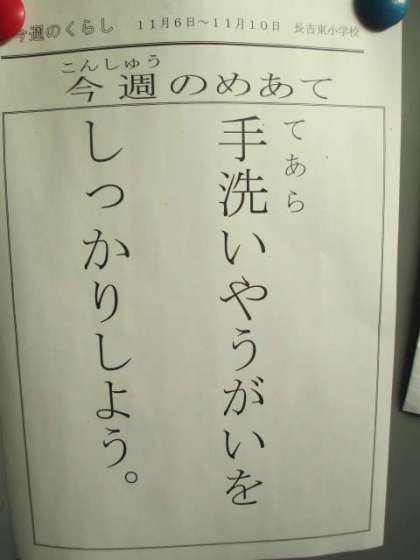 今週のくらし　11月6日～11月10日　長吉東小学校
こんしゅう
今週のめあて
てあら
手洗いやうがいを
しっかりしよう。